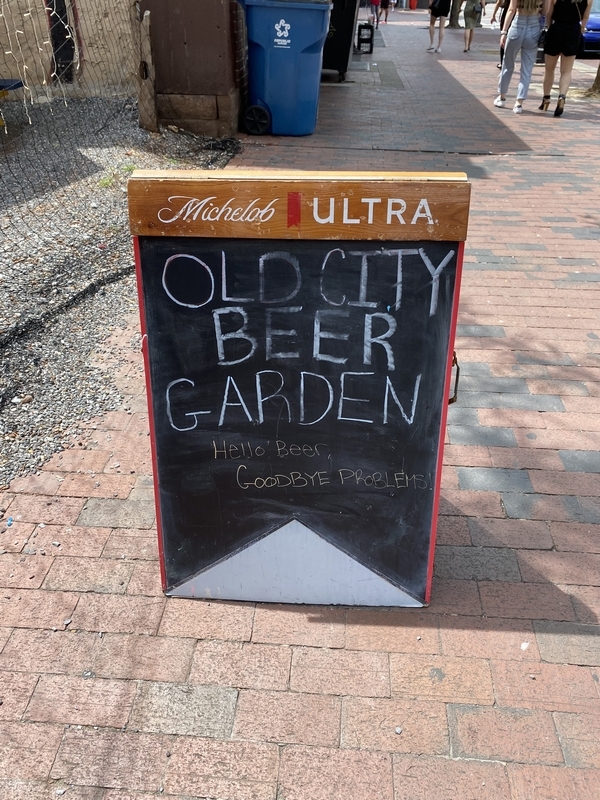 Michelob ULTRA
OLD CITY
BEER
GARDEN
Hello Beer,
GOODBYE PROBLEMS!